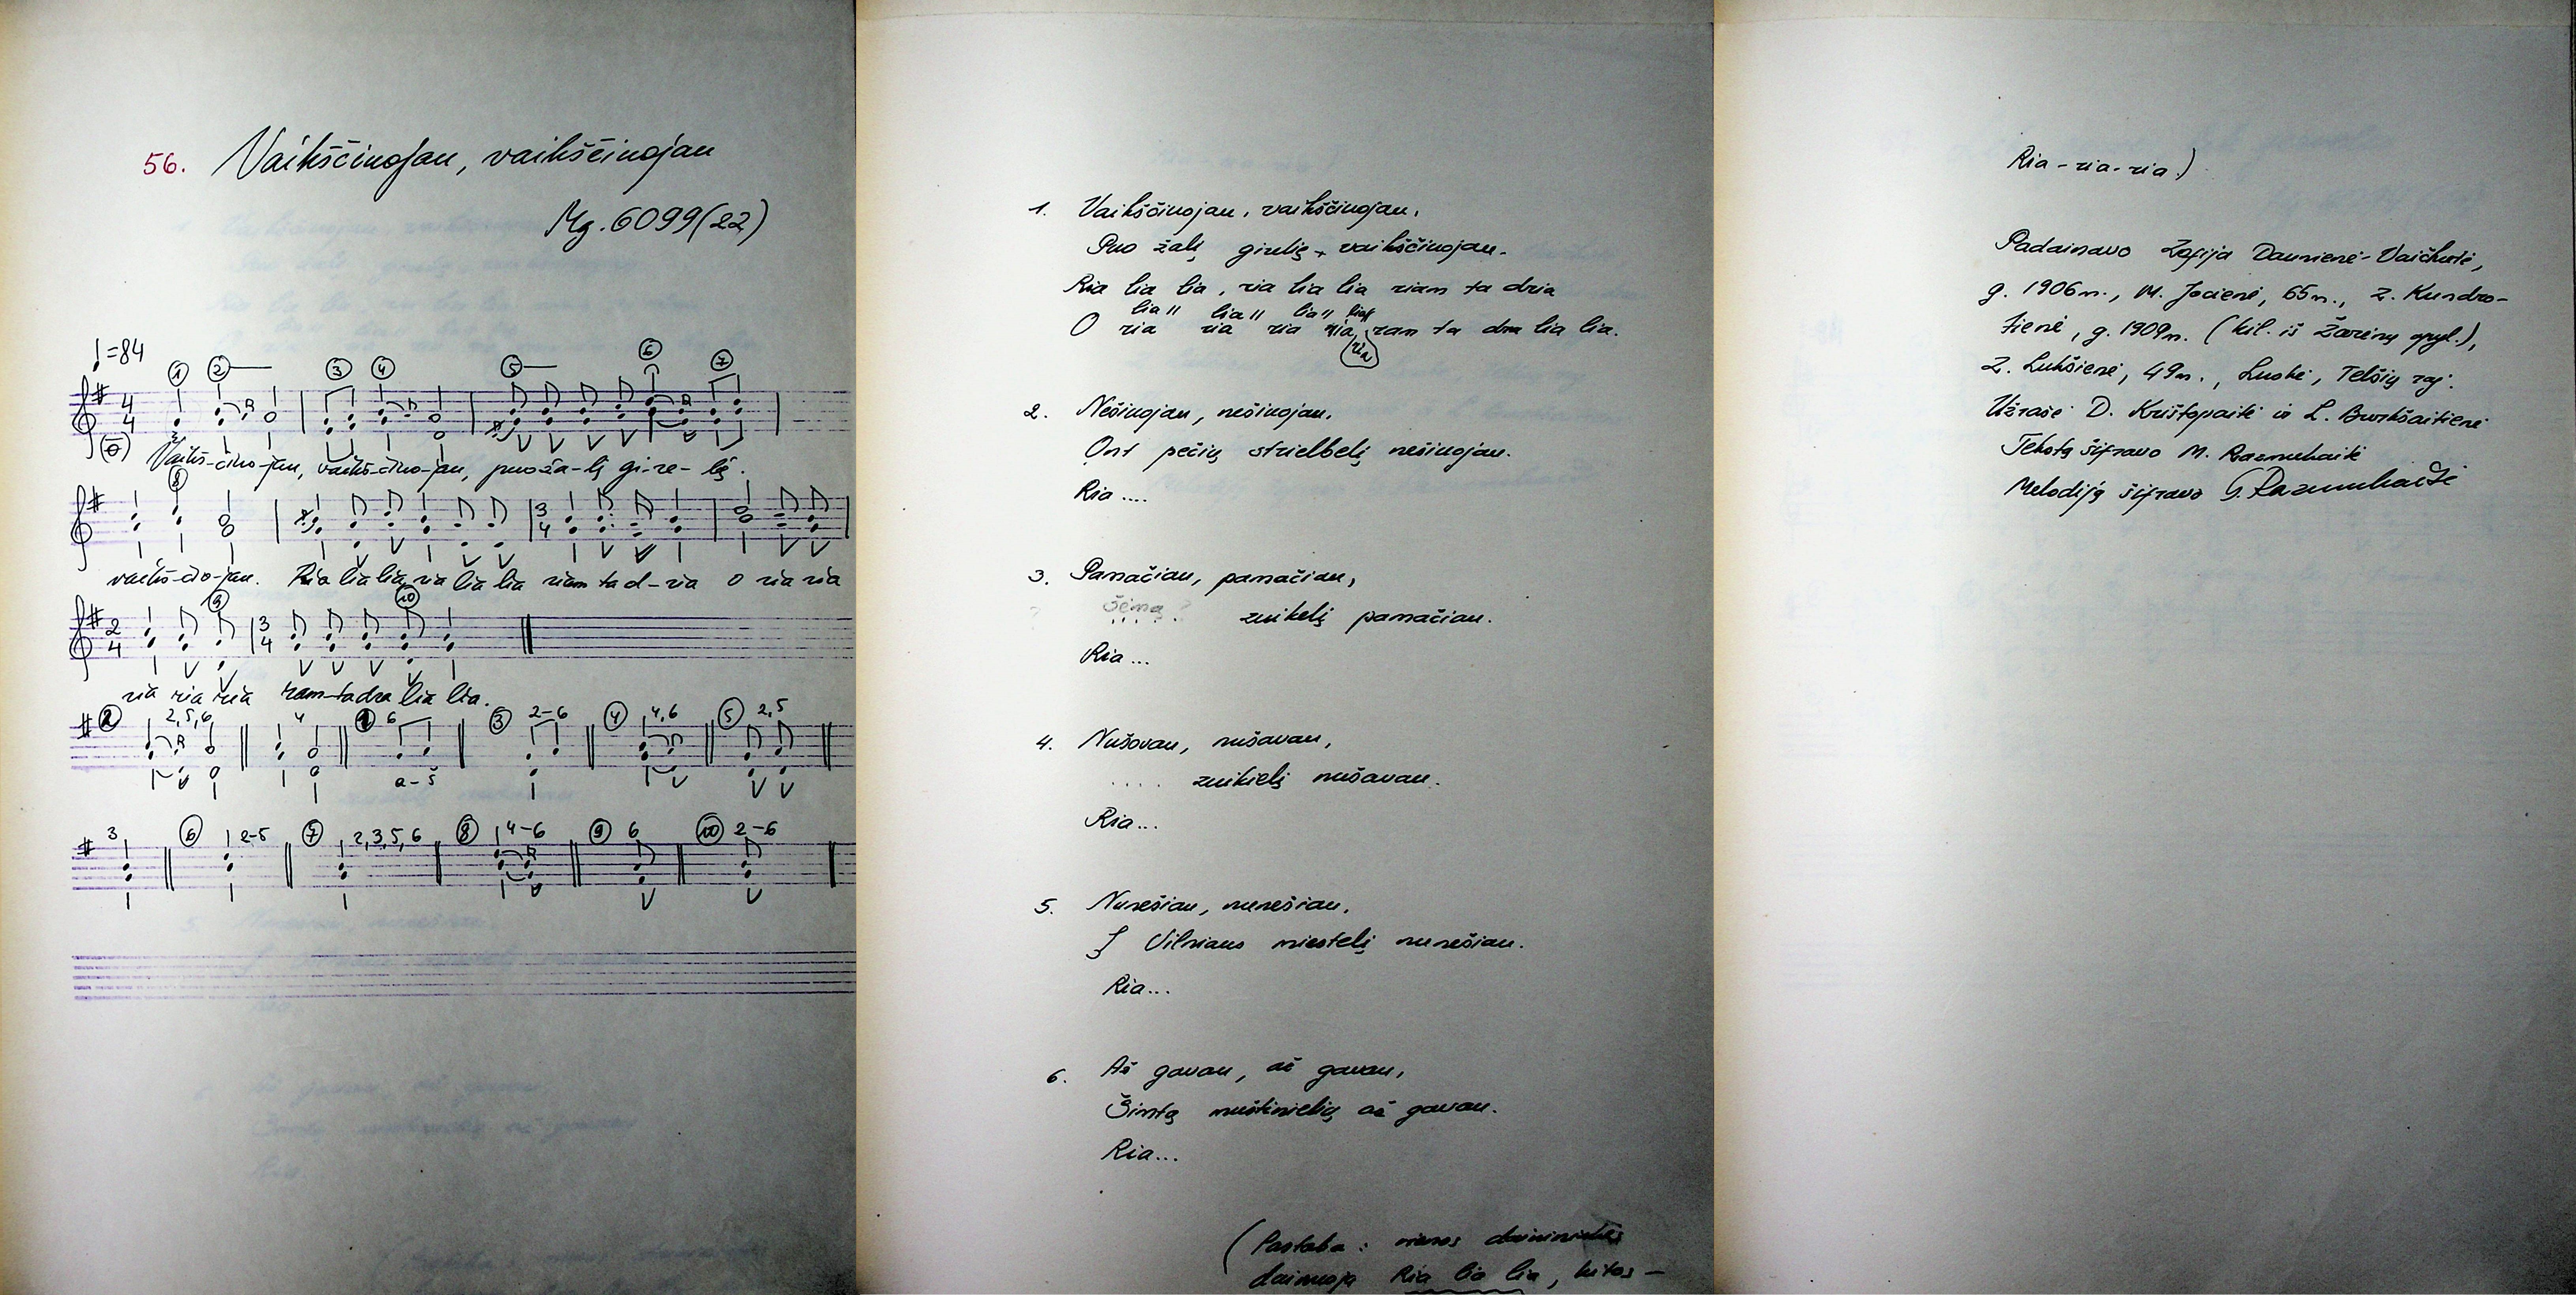 56. Vaikščinojau, vaikščinojau
Mg. 6099(22)
♩=84
1 2 3 4 5 6 7
4/4
Vaikš-čino-jau, vaikš-čino-jau, puo ža-lę gi-re-lę.
8
3/4
vaikš-čio-jau. Ria lia lia ria lia lia riam ta d-ria o ria ria
9 10
2/4 3/4
ria ria ria ram-ta dra lia lia.
2 2,5,6 4 1 6 3 2-6 4 4,6 5 2,5
a-š
3 6 2-5 7 2,3,5,6 8 4-6 9 6 10 2-6
1. Vaikščinojau, vaikščinojau,
Puo žalę girelę vaikščinojau.
Ria lia lia, ria lia lia riam ta dria
lia" lia" lia" lia"
O ria ria ria ria ram ta dra lia lia.
ria
2. Nešinojau, nešinojau,
Ont pečių strielbelę nešinojau.
Ria ....
3. Pamačiau, pamačiau,
Šėma ?
..... zuikelį pamačiau.
Ria ...
4. Nušovau, nušavau,
.... zuikielį nušavau.
Ria...
5. Nunešiau, nunešiau,
Į Vilniaus miestelį nunešiau.
Ria...
6. Aš gavau, aš gavau,
Šimtą muštinielių aš gavau.
Ria...
(Pastaba: vienos dainininkės
dainuoja Ria lia lia, kitos –
Ria - ria - ria.)
Padainavo Zofija Daunienė-Vaičkutė,
g. 1906 m., M. Jocienė, 65 m., Z. Kundro-
tienė, g. 1909 m. (kil. iš Žarėnų apyl.),
Z. Lukšienė, 49 m., Luokė, Telšių raj.
Užrašė D. Krištopaitė ir L. Burkšaitienė
Tekstą šifravo M. Razmukaitė
Melodiją šifravo G. Razmukaitė